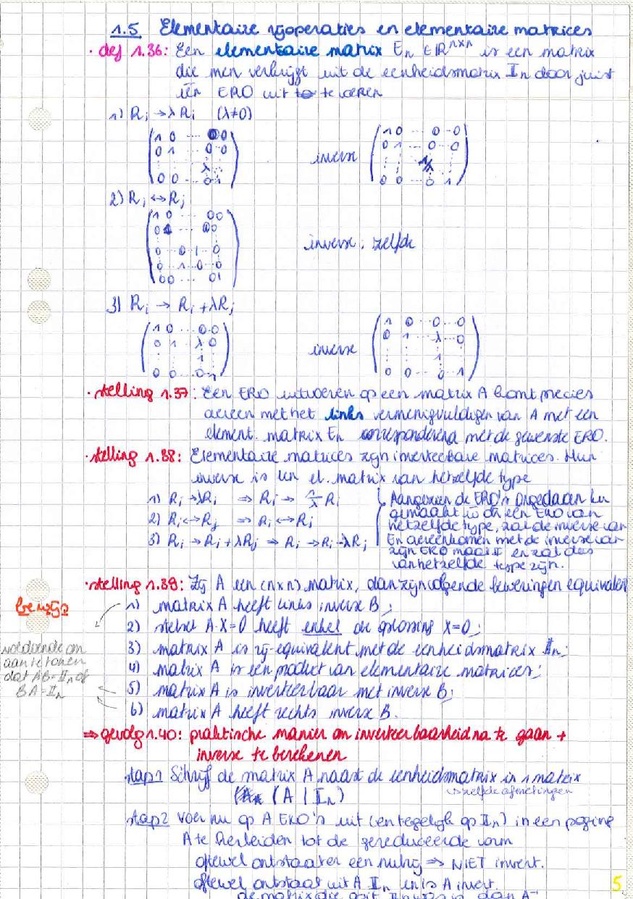 1.5 Elementaire rijoperaties en elementaire matrices
· def 1.36: Een elementaire matrix En ∈ ℝⁿˣⁿ is een matrix
die men verkrijgt uit de eenheidsmatrix 𝕀n door juist
één ERO uit te voeren
1) Ri → λRi (λ≠0)
inverse
2) Ri ↔ Rj
inverse: zelfde
3) Ri → Ri + λRj
inverse
· stelling 1.37: Een ERO uitvoeren op een matrix A komt precies
overeen met het links vermenigvuldigen van A met een
element. matrix En corresponderend met de gewenste ERO.
· stelling 1.38: Elementaire matrices zijn inverteerbare matrices. Hun
inverse is een el. matrix van hetzelfde type
1) Ri → λRi ⇒ Ri → 1/λ Ri
2) Ri ↔ Rj ⇒ Ri ↔ Rj
3) Ri → Ri + λRj ⇒ Ri → Ri - λRj
Aangezien de ERO's ongedaan kan
gemaakt w dr een ERO van
hetzelfde type, zal de inverse van
En overeenkomen met de inverse van
zijn ERO maar 𝕀 en zal dus
van hetzelfde type zijn.
· stelling 1.39: Zij A een (n×n) matrix, dan zijn volgende beweringen equivalent
bewijs
1) matrix A heeft links inverse B;
2) stelsel A.X=0 heeft enkel de oplossing X=0;
3) matrix A is rij-equivalent met de eenheidsmatrix 𝕀n;
4) matrix A is een product van elementaire matrices;
5) matrix A is inverteerbaar met inverse B;
6) matrix A heeft rechts inverse B.
voldoende om
aan te tonen
dat AB=𝕀n of
BA=𝕀n
⇒ gevolg 1.40: praktische manier om inverteerbaarheid na te gaan +
inverse te berekenen
stap1 Schrijf de matrix A naast de eenheidsmatrix in 1 matrix
(A | 𝕀n)
↳ zelfde afmetingen
stap2 Voer nu op A ERO's uit (en tegelijk op 𝕀n) in een poging
A te herleiden tot de gereduceerde vorm
ofwel ontstaat er een nulrij ⇒ NIET invert.
ofwel ontstaat uit A 𝕀n en is A invert.
5